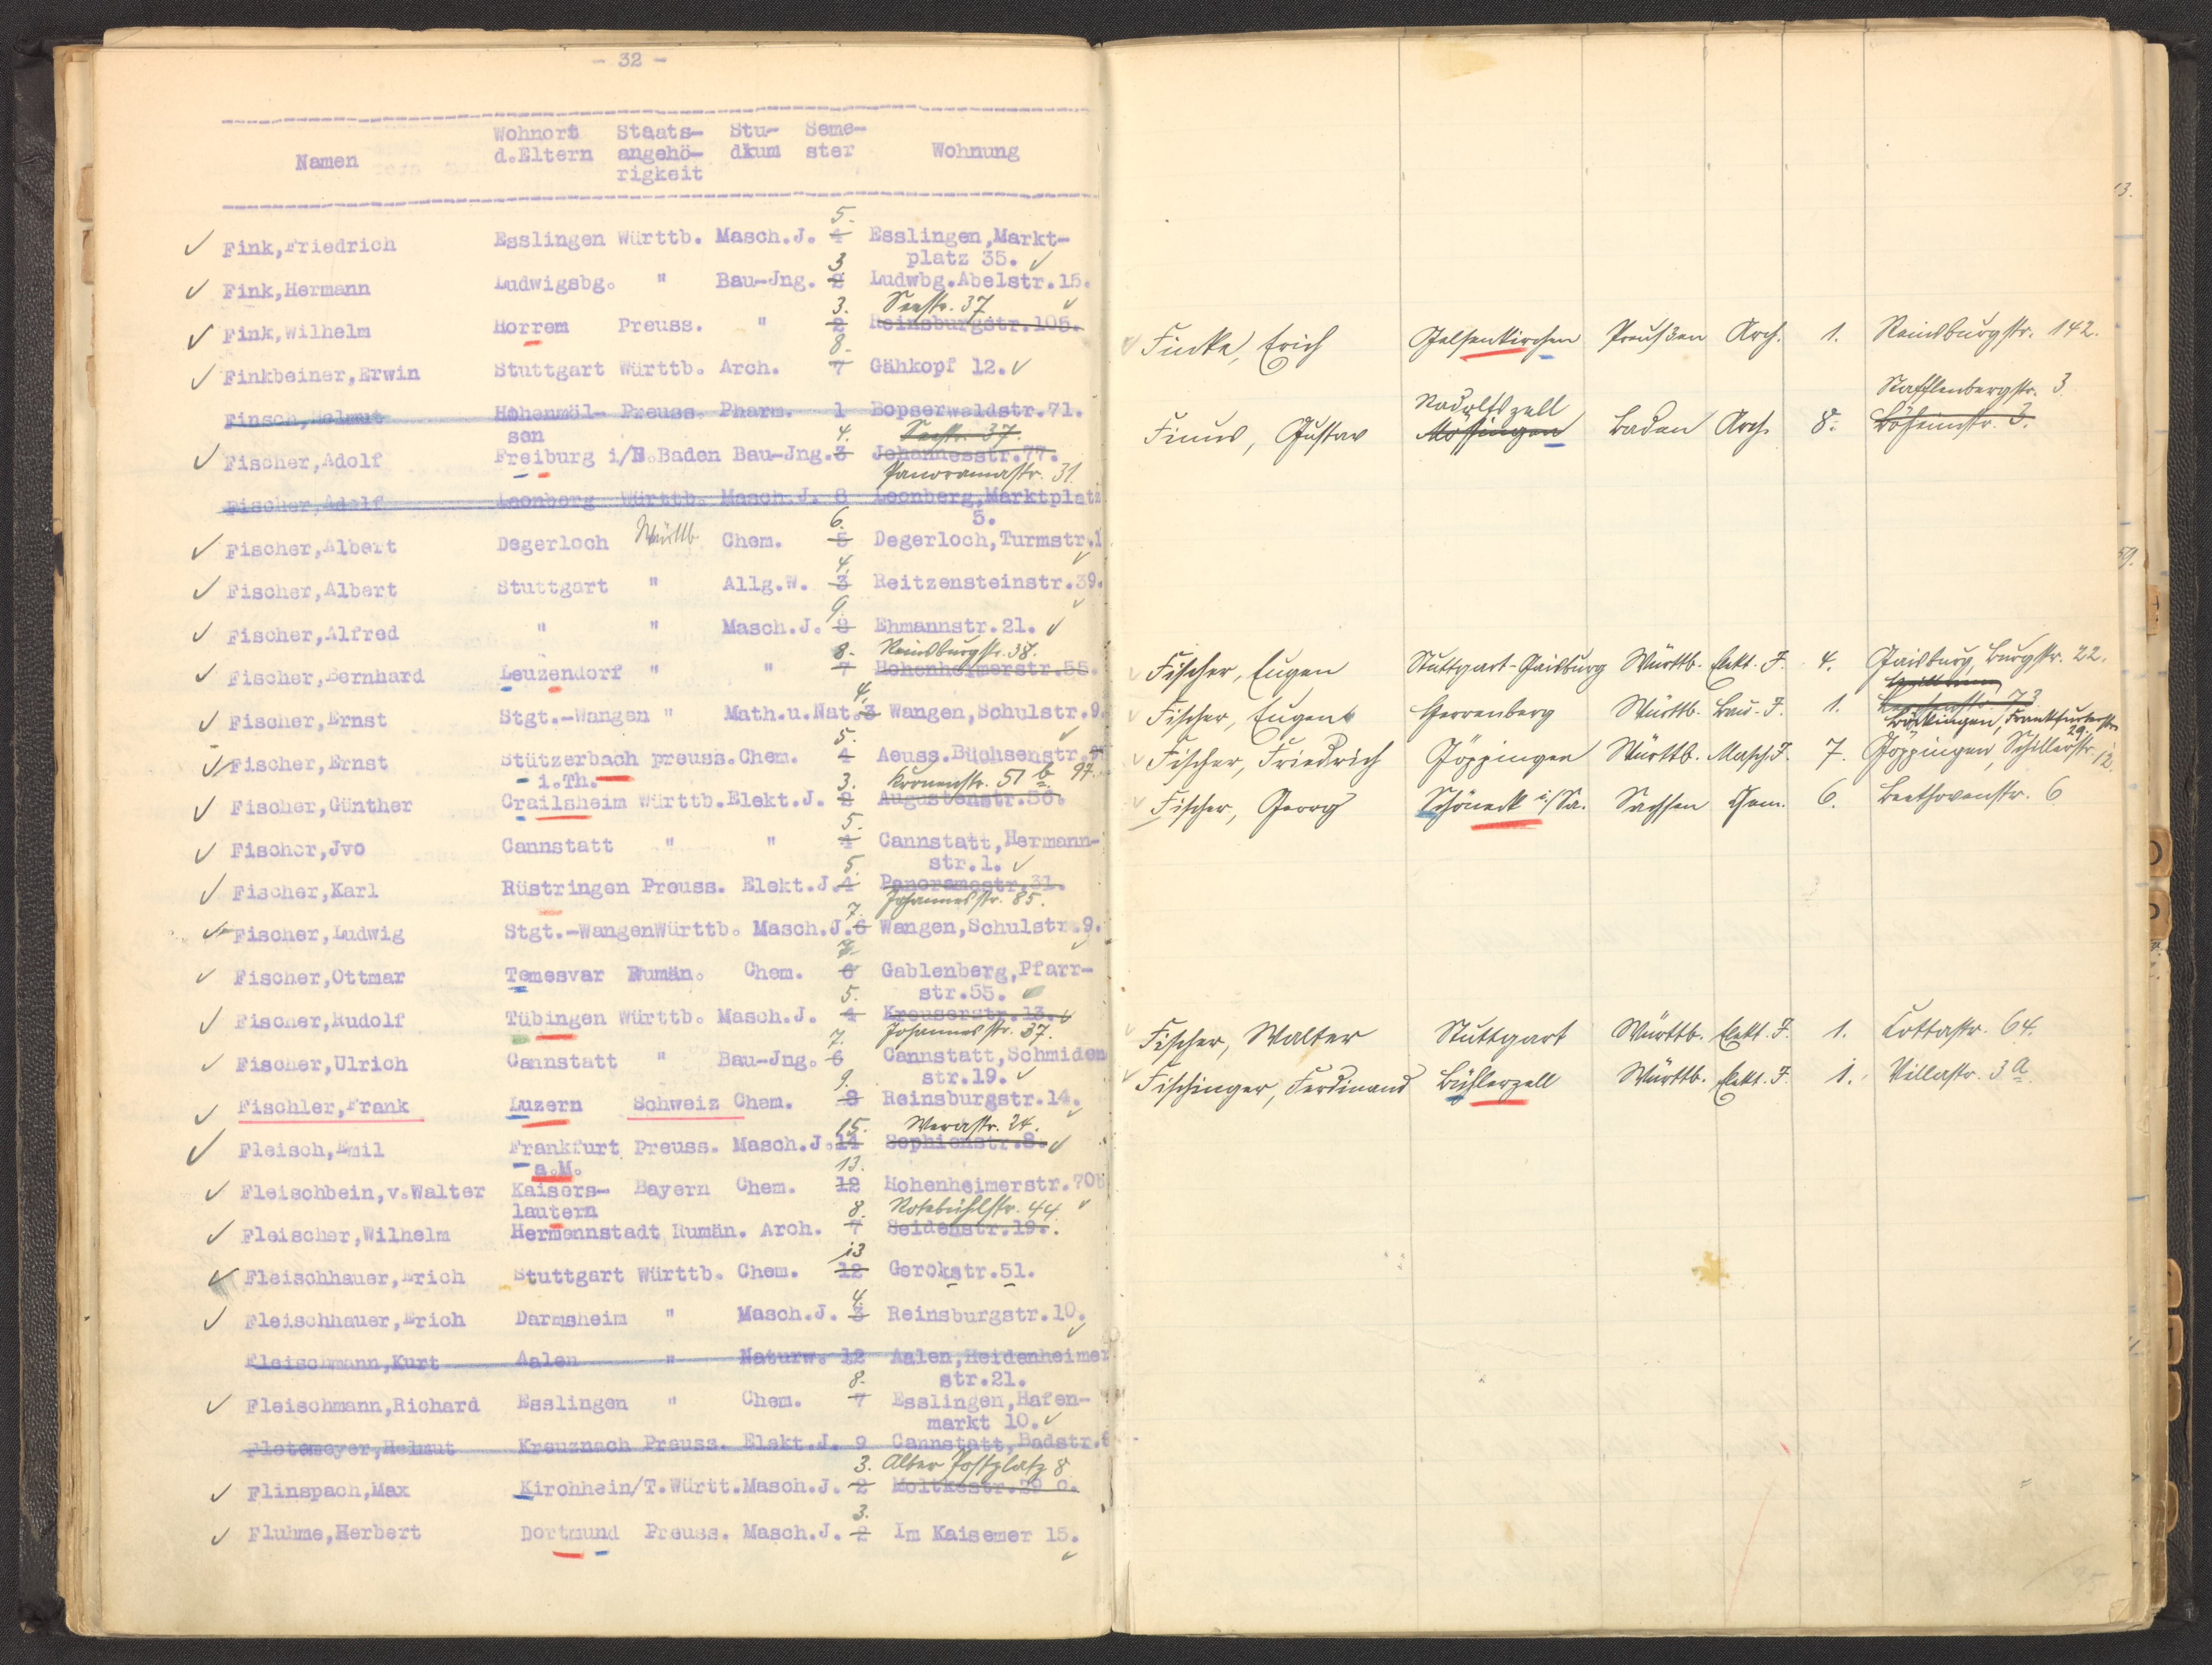 - 32 -
Namen Wohnort d.Eltern Staats-angehö-rigkeit Stu-dium Seme-ster Wohnung
5.
Fink,Friedrich Esslingen Württb. Masch.J. 4 Esslingen,Markt-
3. platz 35.
Fink,Hermann Ludwigsbg. " Bau-Jng. 2 Ludwbg.Abelstr.15.
3. Seestr. 37
Fink,Wilhelm Horrem Preuss. " 2 Reinsburgstr.105.
8.
Finkbeiner,Erwin Stuttgart Württb. Arch. 7 Gähkopf 12.
Finsch,Helmut Hohenmöl- Preuss. Pharm. 1 Bopserwaldstr.71.
sen 4. Seestr. 37.
Fischer,Adolf Freiburg i/B.Baden Bau-Jng.3 Johannesstr.77.
Panoramastr. 31.
Fischer,Adolf Leonberg Württb. Masch.J. 8 Leonberg,Marktplatz
6. 5.
Fischer,Albert Degerloch Württb Chem. 5 Degerloch,Turmstr.1
4.
Fischer,Albert Stuttgart " Allg.W. 3 Reitzensteinstr.39.
9.
Fischer,Alfred " " Masch.J. 8 Ehmannstr.21.
8. Reinsburgstr. 38.
Fischer,Bernhard Leuzendorf " " 7 Hohenheimerstr.55.
4.
Fischer,Ernst Stgt.-Wangen " Math.u.Nat.3 Wangen,Schulstr.9.
5.
Fischer,Ernst Stützerbach preuss.Chem. 4 Aeuss.Büchsenstr.
i.Th. 3. Kronenstr. 51 b 97.
Fischer,Günther Crailsheim Württb.Elekt.J. 2 Augustenstr.56.
5.
Fischer,Jvo Cannstatt " " 4 Cannstatt,Hermann-
5. str.1.
Fischer,Karl Rüstringen Preuss. Elekt.J.4 Panoramastr.31.
7. Johannesstr. 85.
Fischer,Ludwig Stgt.-WangenWürttb. Masch.J.6 Wangen,Schulstr.9.
7.
Fischer,Ottmar Temesvar Rumän. Chem. 6 Gablenberg,Pfarr-
5. str.55.
Fischer,Rudolf Tübingen Württb. Masch.J. 4 Kreuserstr.13.
7. Johannesstr. 37.
Fischer,Ulrich Cannstatt " Bau-Jng. 6 Cannstatt,Schmiden
9. str.19.
Fischler,Frank Luzern Schweiz Chem. 8 Reinsburgstr.14.
15. Werastr. 24.
Fleisch,Emil Frankfurt Preuss. Masch.J.14 Sophienstr.8.
a.M. 13.
Fleischbein,v.Walter Kaisers- Bayern Chem. 12 Hohenheimerstr.70b
lautern 8. Rotebühlstr. 44
Fleischer,Wilhelm Hermannstadt Rumän. Arch. 7 Seidenstr.19.
13
Fleischhauer,Erich Stuttgart Württb. Chem. 12 Gerokstr.51.
4.
Fleischhauer,Erich Darmsheim " Masch.J. 3 Reinsburgstr.10.
Fleischmann,Kurt Aalen " Naturw. 12 Aalen,Heidenheimer
8. str.21.
Fleischmann,Richard Esslingen " Chem. 7 Esslingen,Hafen-
markt 10.
Flotemeyer,Helmut Kreuznach Preuss. Elekt.J. 9 Cannstatt,Badstr.
3. Alter Postplatz 8
Flinspach,Max Kirchhein/T.Württ.Masch.J. 2 Moltkestr.29 c.
3.
Fluhme,Herbert Dortmund Preuss. Masch.J. 2 Im Kaisemer 15.
Fincke, Erich Gelsenkirchen Preußen Arch. 1. Reinsburgstr. 142.
Radolfszell Stafflenbergstr. 3
Finus, Gustav Mössingen Baden Arch. 8. Böheimstr. 3.
Fischer, Eugen Stuttgart-Gaisburg Württb. Elekt. J. 4. Gaisburg, Burgstr. 22.
Fischer, Eugen Herrenberg Württb. Bau-J. 1.
Böckingen, Frankfurterstr. 29.
Fischer, Friedrich Göppingen Württb. Masch.J. 7. Göppingen, Schillerstr. 12.
Fischer, Georg Schöneck i/Sa. Sachsen Chem. 6. Beethovenstr. 6
Fischer, Walter Stuttgart Württb. Elekt. J. 1. Cottastr. 64.
Fischinger, Ferdinand Bühlerzell Württb. Elekt. J. 1. Villastr. 3a